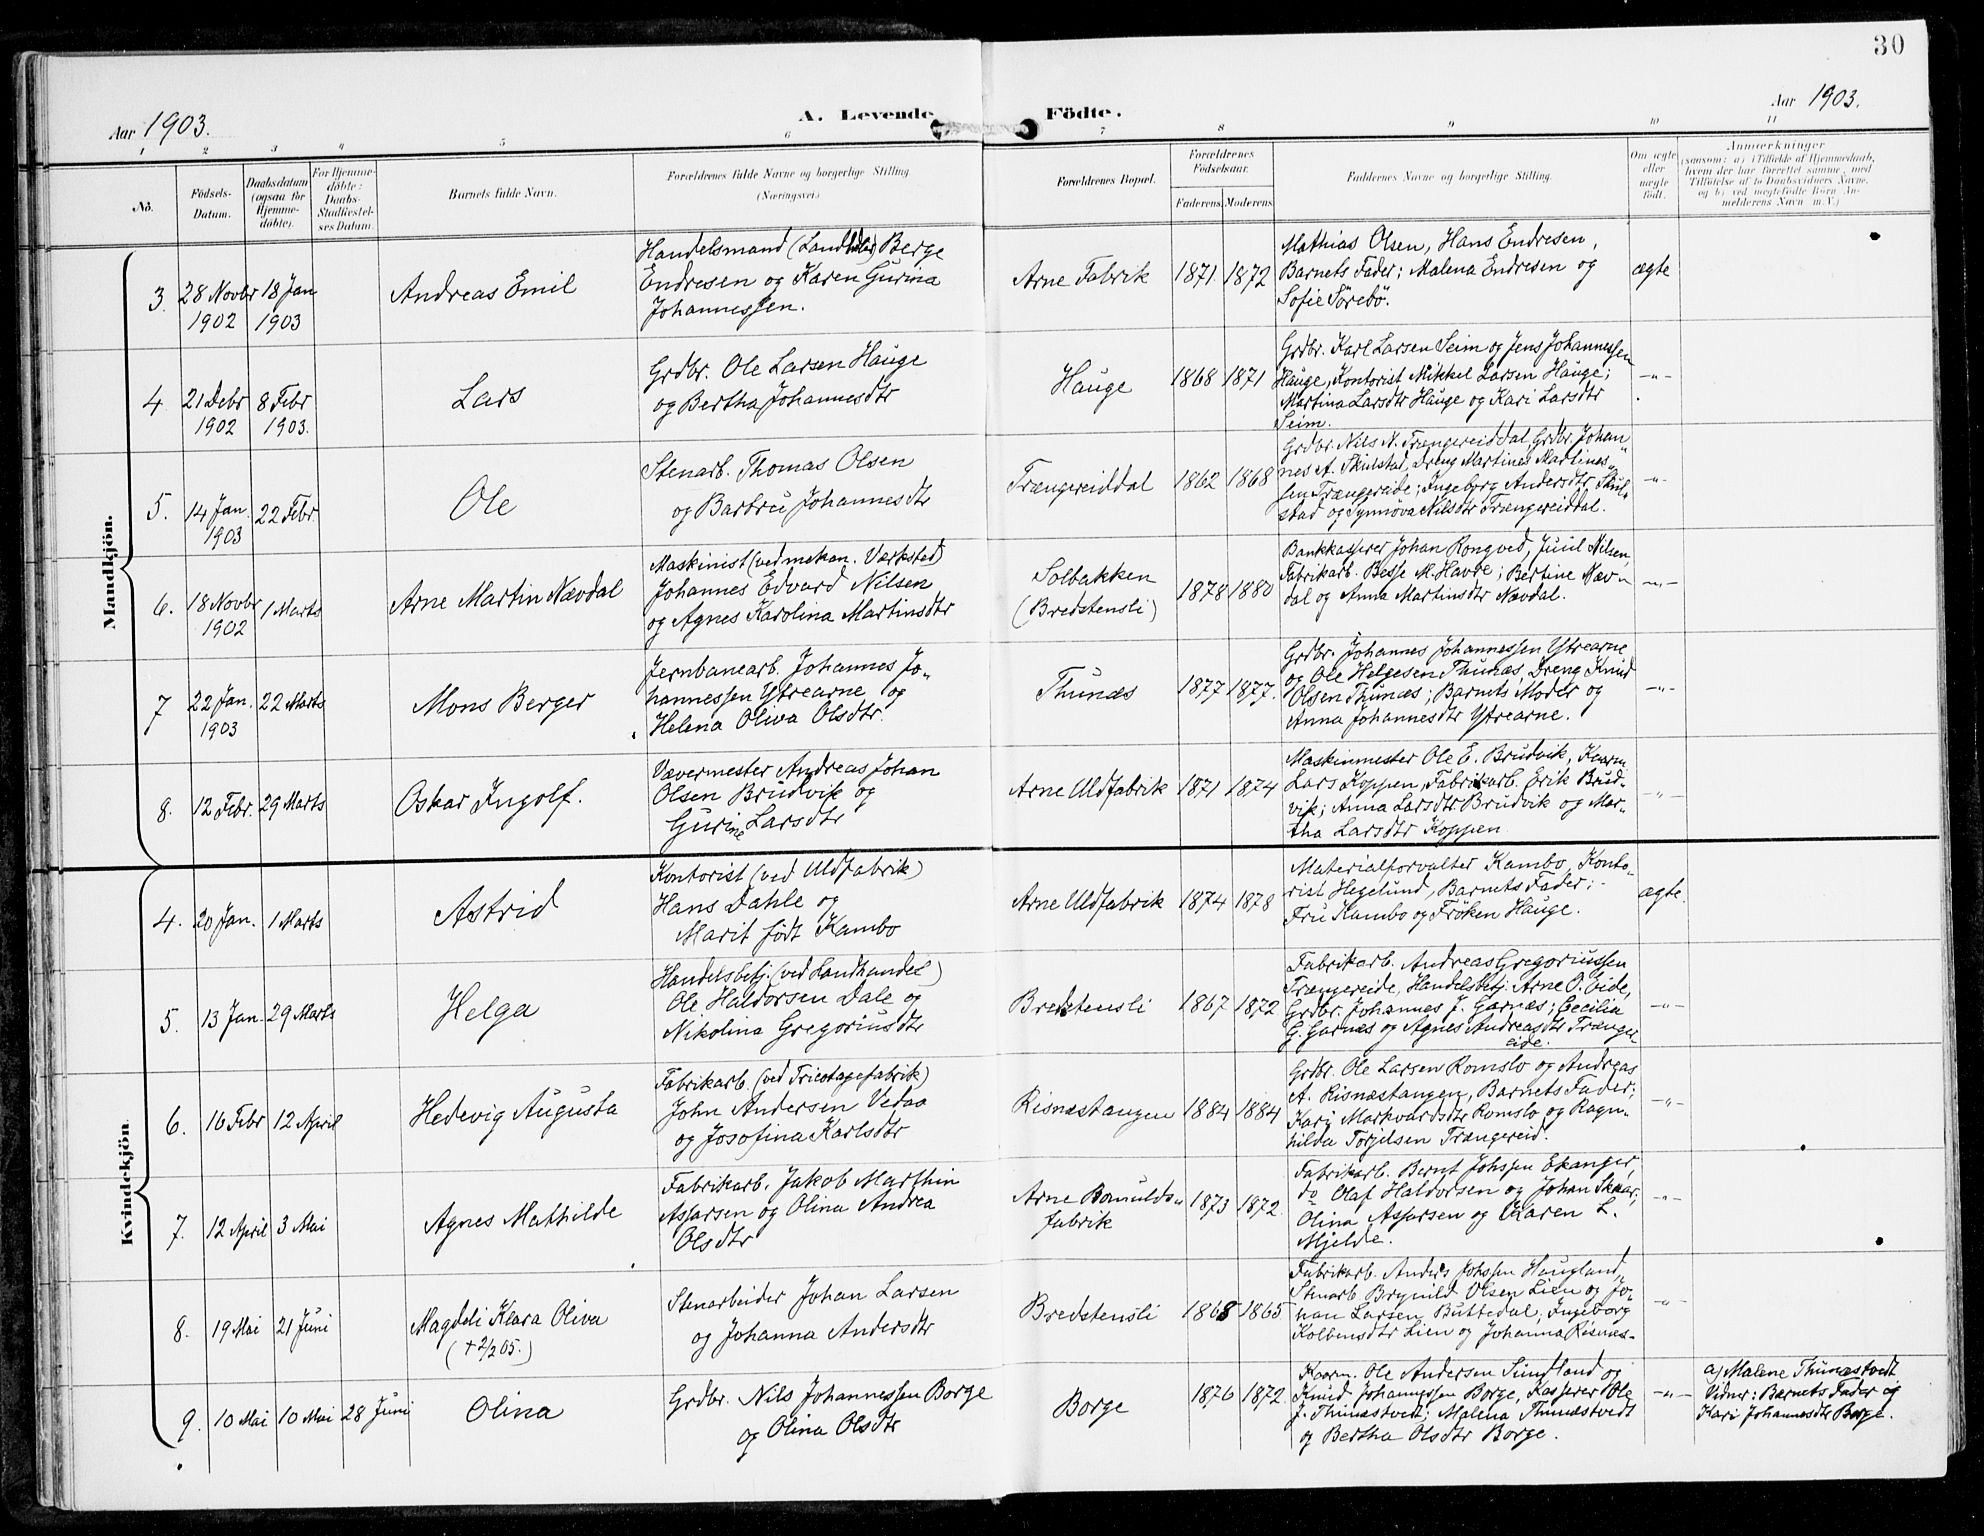 30
Aar 1903.
A. Levende Födte.
Aar 1903.
1 2 3 4 5 6 7 8 9 10 11
No.
Födsels-
Datum.
Daabsdatum
(ogsaa for
Hjemme-
döbte).
For Hjemme-
döbte:
Daabs-
Stadfæstel-
ses Datum.
Barnets fulde Navn.
Forældrenes fulde Navne og borgerlige Stilling
(Næringsvei)
Forældrenes Bopæl.
Forældrenes
Födselsaar.
Faderens. Moderens.
Faddernes Navne og borgerlige Stilling.
Om ægte
eller
uægte
födt.
Anmærkninger
(saasom: a) i Tilfælde af Hjemmedaab,
hvem der har forrettet samme, med
Tilföielse af to Daabsvidners Navne,
og b) ved uægtefödte Börn An-
melderens Navn m. V.)
Mandkjön.
3. 28 Novbr 1902
18 Jan 1903
Andreas Emil
Handelsmand (Landhdler) Berge
Endresen og Karen Gurina
Johannessen.
Arne Fabrik
1871. 1872
Mathias Olsen, Hans Endresen,
Barnets Fader; Malena Endresen og
Sofie Sörebö.
ægte
4 21 Debr 1902
8 Febr 1903.
Lars
Grdbr. Ole Larsen Hauge
og Bertha Johannesdtr
Hauge
1868 1871
Grdbr. Karl Larsen Seim og Jens Johannessen
Hauge, Kontorist Mikkel Larsen Hauge;
Martina Larsdtr Hauge og Kari Larsdtr
Seim.
—"—
5. 14 Jan. 1903
22 Febr.
Ole
Stenarb. Thomas Olsen
og Barbru Johannesdtr
Trængereiddal
1862 1868
Grdbr. Nils N. Trængereiddal, Grdbr. Johan-
nes A. Skulstad, Dreng Martines Martines-
sen Trængereide; Ingeborg Andersdtr. Skul-
stad og Synnöva Nilsdtr Trængereiddal.
—"—
6. 18 Novbr 1902
1 Marts
Arne Martin Nævdal
Maskinist (ved mekan. Værksted)
Johannes Edvard Nilsen
og Agnes Karolina Martinsdtr
Solbakken
(Bredstensli)
1878 1880
Bankkasserer Johan Rongved, Juul Nilsen,
Fabrikarb. Besse M. Havre; Bertine Næv-
dal og Anna Martinsdtr Nævdal.
—"—
7 22 Jan. 1903
22 Marts
Mons Berger
Jernbanearb. Johannes Jo-
hannessen Ytrearne og
Helena Oliva Olsdtr.
Thunæs
1877 1877.
Grdbr. Johannes Johannessen Ytrearne
og Ole Helgesen Thunæs, Dreng Knud
Olsen Thunæs; Barnets Moder og
Anna Johannesdtr Ytrearne.
—"—
8. 12 Febr.
29 Marts
Oskar Ingolf.
Vævermester Andreas Johan
Olsen Brudvik og
Gurine Larsdtr
Arne Uldfabrik
1871 1874
Maskinmester Ole E. Brudvik, Kaarm.
Lars Koppen, Fabrikarb. Erik Brud-
vik; Anna Larsdtr Brudvik og Mar-
tha Larsdtr Koppen
—"—
Kvindekjön.
4. 20 Jan.
1 Marts
Astrid
Kontorist (ved Uldfabrik)
Hans Dahle og
Marit födt Kambo
Arne Uldfabrik
1874 1878
Materialforvalter Kambo, Konto-
rist Hegelund, Barnets Fader;
Fru Kambo og Fröken Hauge.
ægte.
5. 13 Jan.
29 Marts
Helga
Handelsbetj. (ved Landhandel)
Ole Haldorsen Dale og
Nikolina Gregoriusdtr
Bredstensli
1867 1872
Fabrikarb. Andreas Gregoriussen
Trængereide, Handelsbetj. Arne O. Eide,
Grdbr. Johannes J. Garnæs; Cecilia
G. Garnæs og Agnes Andreasdtr Trænger-
eide.
—"—
6. 16 Febr
12 April
Hedevig Augusta
Fabrikarb. (ved Tricotagefabrik)
John Andersen Vedaa
og Josofina Karlsdtr
Risnæstangen
1884 1884
Grdbr. Ole Larsen Romslo og Andreas
A. Risnæstangen, Barnets Fader;
Kari Markvardsdtr Romslo og Ragn-
hilda Torjelsen Trængereid.
—"—
7. 12 April
3 Mai
Agnes Mathilde
Fabrikarb. Jakob Marthin
Assarsen og Olina Andrea
Olsdtr
Arne Bomulds-
fabrik
1873 1872.
Fabrikarb. Bernt Johssen Ekanger,
do Olaf Haldorsen og Johan Skaar;
Olina Assarsen og Karen L.
Mjelde.
—"—
8. 19 Mai
21 Juni
Magdeli Klara Oliva
(+ 2/2 05.)
Stenarbeider Johan Larsen
og Johanna Andersdtr
Bredstensli
1868 1865
Fabrikarb. Anders Johssen Haugland,
Stenarb Brynild Olsen Lien og Jo-
han Larsen Buttedal, Ingeborg
Kolbensdtr Lien og Johanna Risnæs-
—"—
9. 10 Mai
10 Mai
28 Juni
Olina
Grdbr. Nils Johannessen Borge
og Olina Olsdtr
Borge
1876 1872.
Kaarm. Ole Andersen Sundland og
Knud Johannessen Borge, Kasserer Ole
J. Thunæstvedt; Malena Thunæstvedt
og Bertha Olsdtr Borge.
—"—
a) Malene Thunæstvedt
Vidner: Barnets Fader og
Kari Johannesdtr Borge.